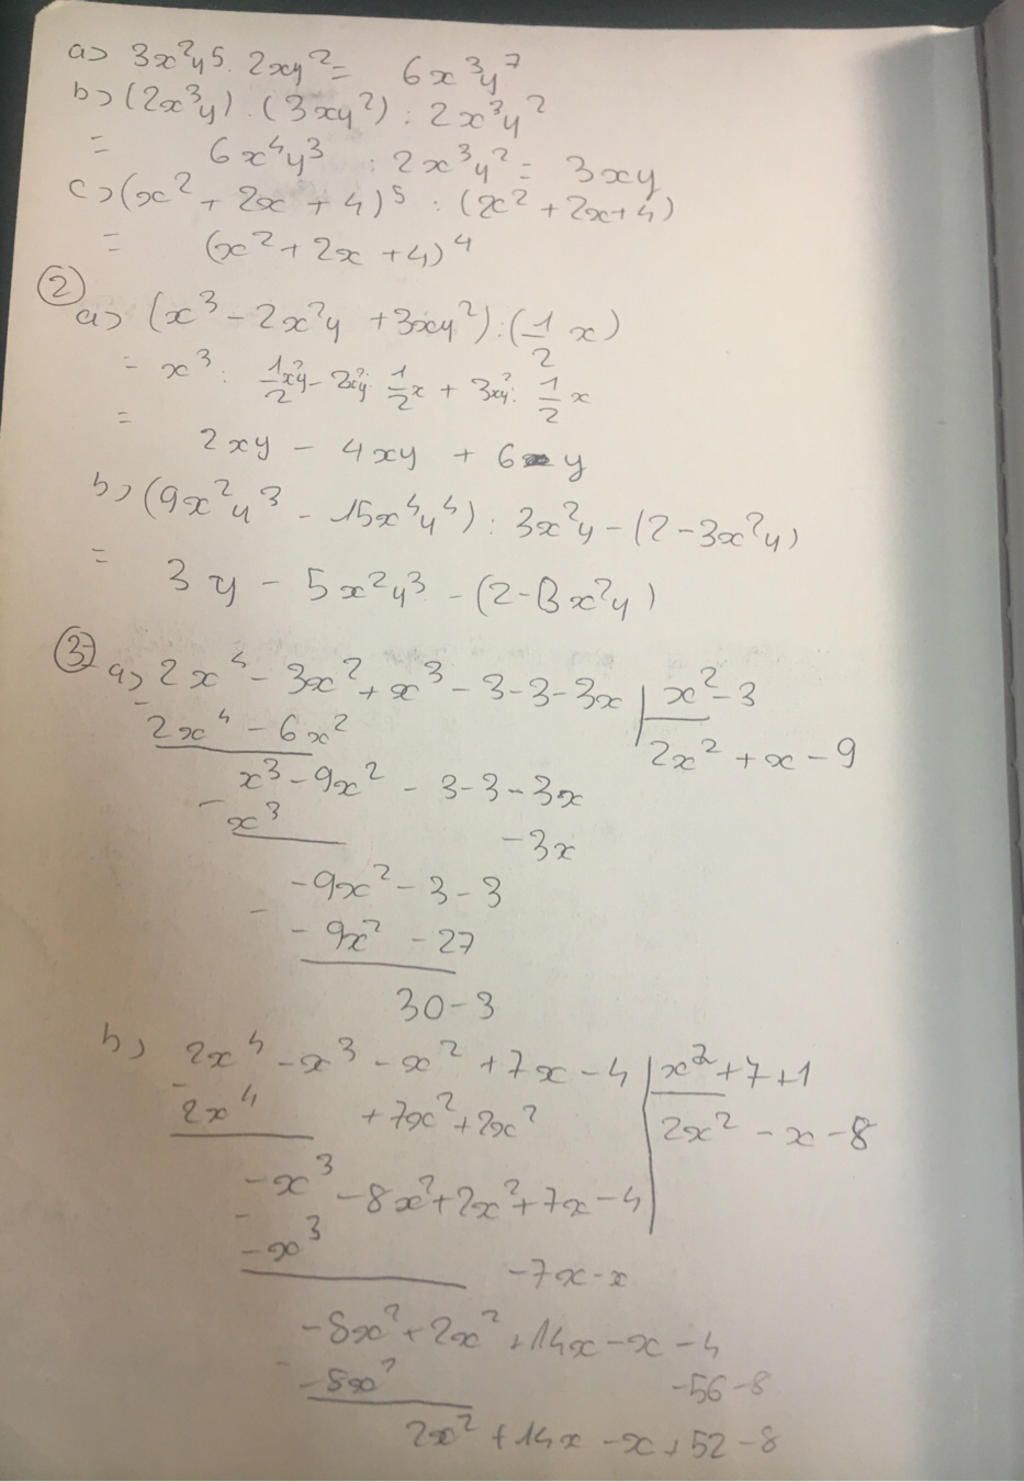 a) 3x²y⁵. 2xy² = 6x³y⁷
b) (2x³y) . (3xy²) : 2x³y²
= 6x⁴y³ : 2x³y² = 3xy
c) (x² + 2x + 4)⁵ : (x² + 2x + 4)
= (x² + 2x + 4)⁴
② a) (x³ - 2x²y + 3xy²) : (1/2 x)
= x³ : 1/2 x²y - 2x²y : 1/2 x + 3xy² : 1/2 x
= 2xy - 4xy + 6 y
b) (9x²y³ - 15x⁴y⁴) : 3x²y - (2 - 3x²y)
= 3y - 5x²y³ - (2 - 3x²y)
③ a) 2x⁴ - 3x² + x³ - 3 - 3 - 3x | x² - 3
- 2x⁴ - 6x² 2x² + x - 9
x³ - 9x² - 3 - 3 - 3x
- x³ - 3x
- 9x² - 3 - 3
- - 9x² - 27
30 - 3
b) 2x⁴ - x³ - x² + 7x - 4 | x² + 7 + 1
- 2x⁴ + 7x² + 2x² 2x² - x - 8
- x³ - 8x² + 2x² + 7x - 4
- - x³ - 7x - x
- 8x² + 2x² + 14x - x - 4
- - 8x² - 56 - 8
2x² + 14x - x + 52 - 8